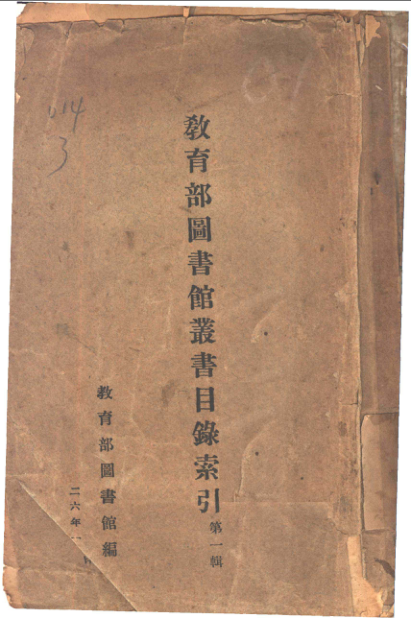 教育部圖書館叢書目錄索引
第一輯
教育部圖書館編
二六年
014
3